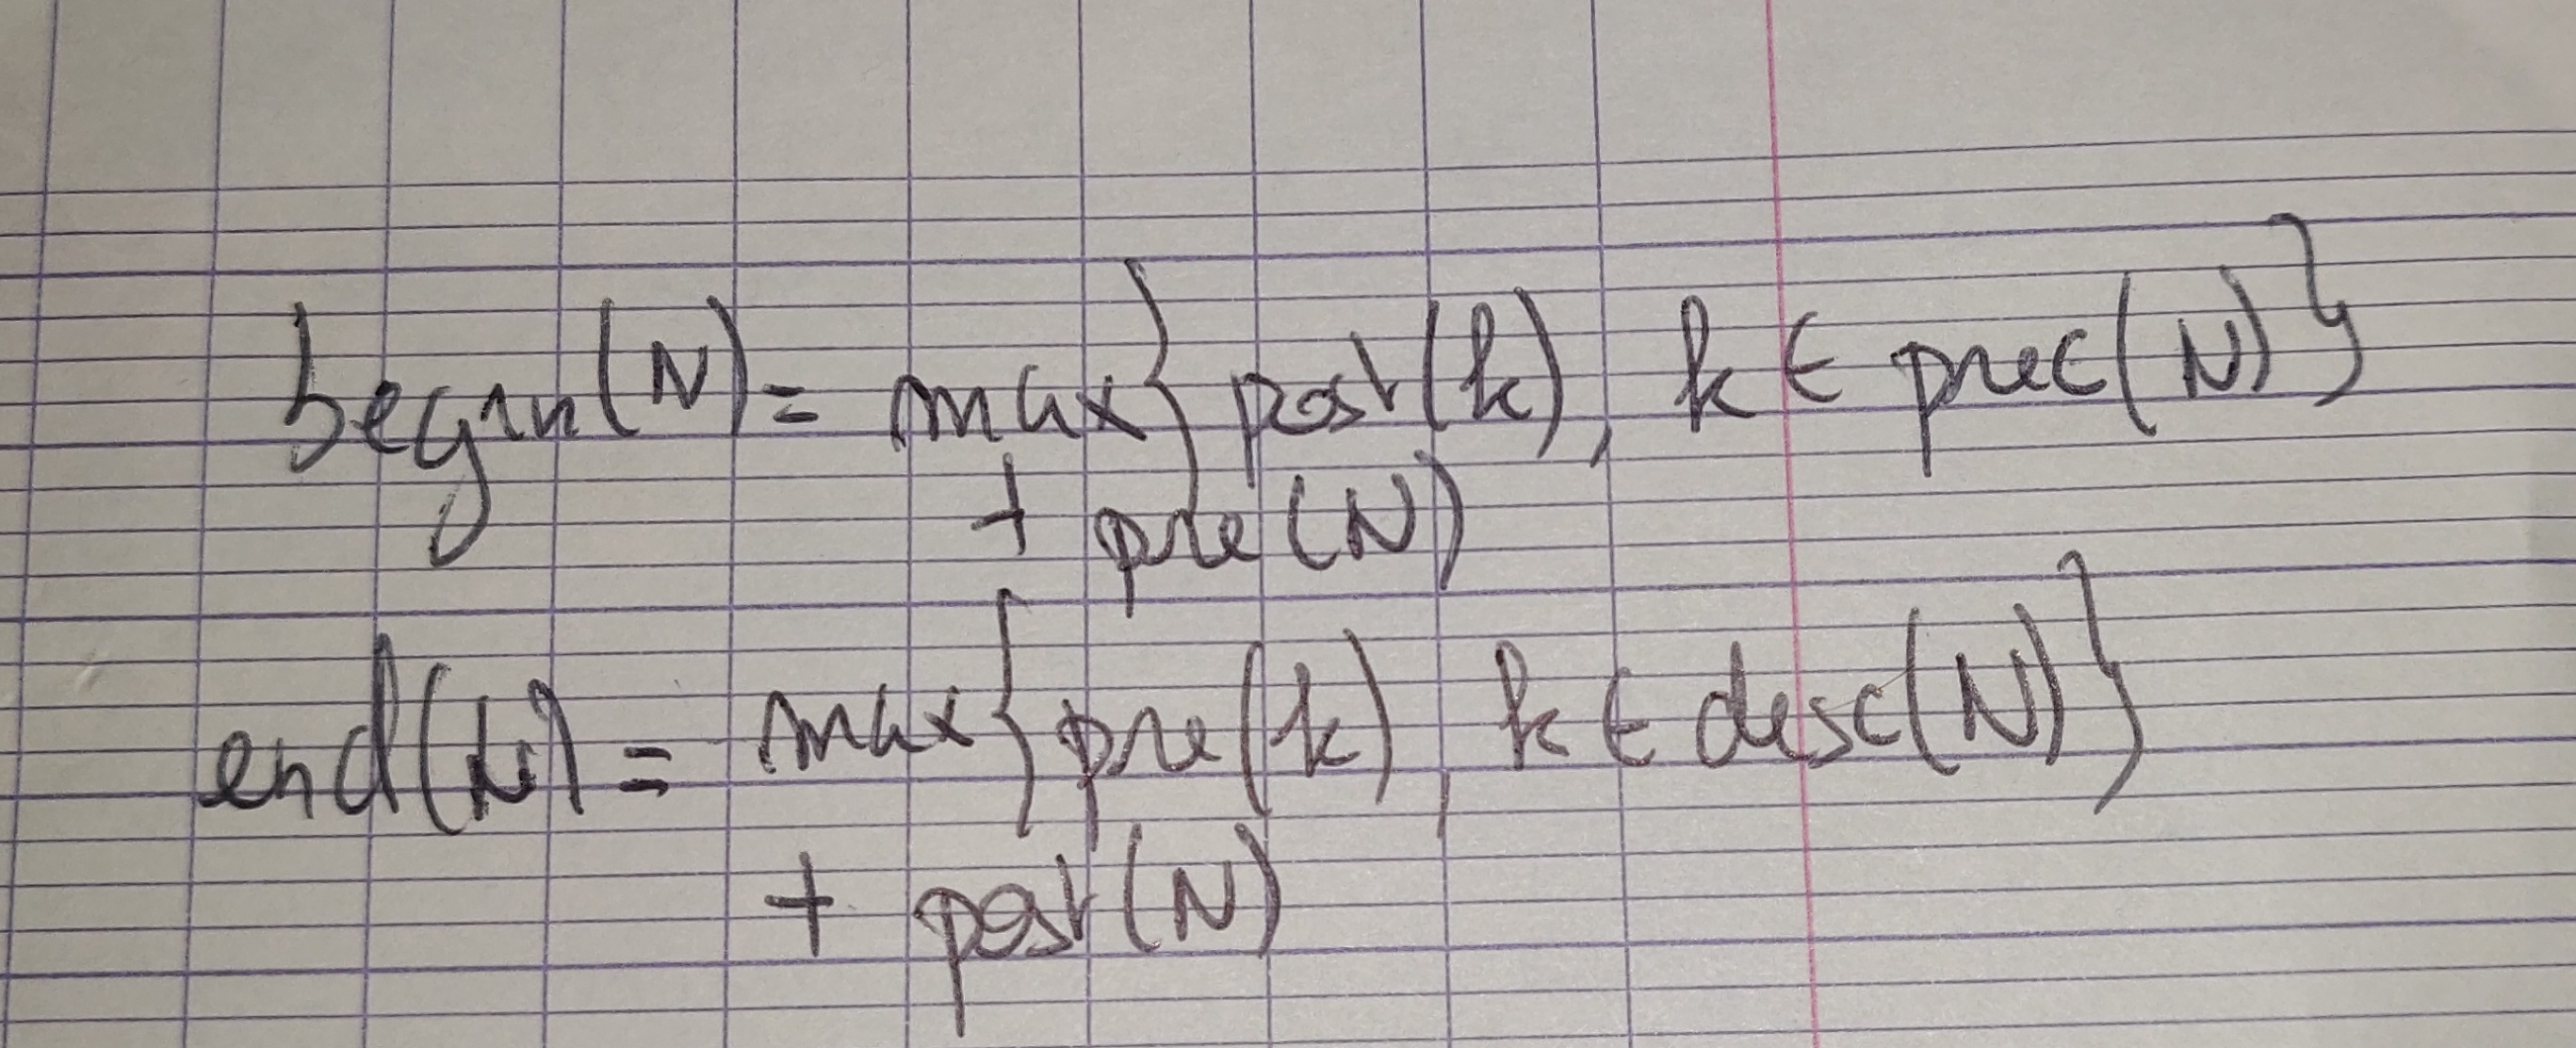 begin(N) = max{post(k), k ∈ prec(N)}
+ pre(N)
end(N) = max{pre(k), k ∈ desc(N)}
+ post(N)